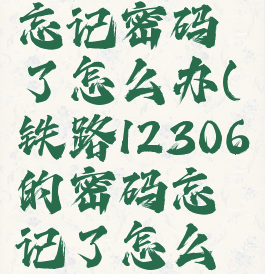 忘记密码
了怎么办(
铁路12306
的密码忘
记了怎么